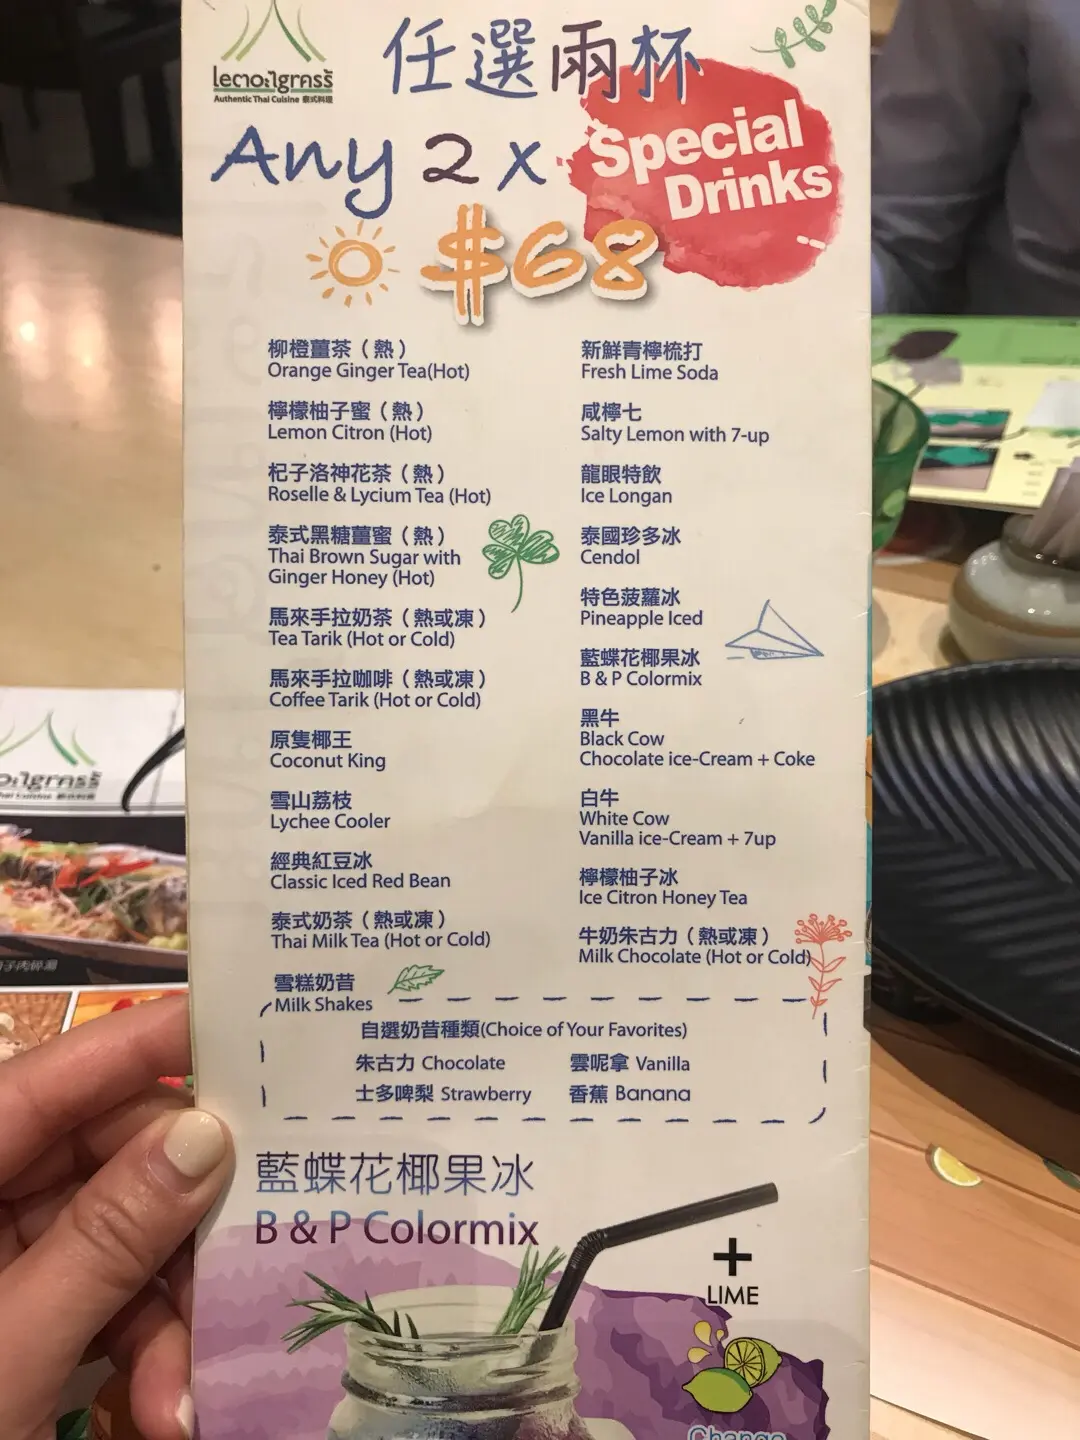 lemongrass
Authentic Thai Cuisine 泰式料理
任選兩杯
Any 2 x
Special
Drinks
$68
柳橙薑茶（熱）
Orange Ginger Tea(Hot)
檸檬柚子蜜（熱）
Lemon Citron (Hot)
杞子洛神花茶（熱）
Roselle & Lycium Tea (Hot)
泰式黑糖薑蜜（熱）
Thai Brown Sugar with
Ginger Honey (Hot)
馬來手拉奶茶（熱或凍）
Tea Tarik (Hot or Cold)
馬來手拉咖啡（熱或凍）
Coffee Tarik (Hot or Cold)
原隻椰王
Coconut King
雪山荔枝
Lychee Cooler
經典紅豆冰
Classic Iced Red Bean
泰式奶茶（熱或凍）
Thai Milk Tea (Hot or Cold)
新鮮青檸梳打
Fresh Lime Soda
咸檸七
Salty Lemon with 7-up
龍眼特飲
Ice Longan
泰國珍多冰
Cendol
特色菠蘿冰
Pineapple Iced
藍蝶花椰果冰
B & P Colormix
黑牛
Black Cow
Chocolate ice-Cream + Coke
白牛
White Cow
Vanilla ice-Cream + 7up
檸檬柚子冰
Ice Citron Honey Tea
牛奶朱古力（熱或凍）
Milk Chocolate (Hot or Cold)
雪糕奶昔
Milk Shakes
自選奶昔種類(Choice of Your Favorites)
朱古力 Chocolate
雲呢拿 Vanilla
士多啤梨 Strawberry
香蕉 Banana
藍蝶花椰果冰
B & P Colormix
+
LIME
Change